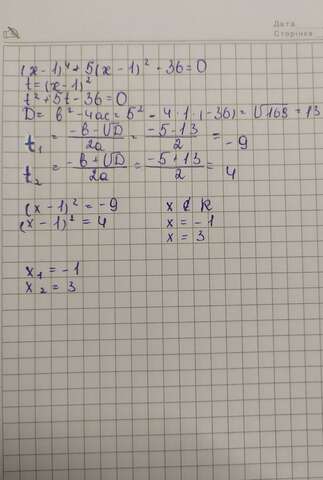 Дата
Сторінка
(x-1)⁴+5(x-1)²-36=0
t=(x-1)²
t²+5t-36=0
D= b²-4ac=5²-4·1·(-36)=√169=13
t₁ = (-b-√D)/2a = (-5-13)/2 = -9
t₂ = (-b+√D)/2a = (-5+13)/2 = 4
(x-1)² = -9 x ∉ R
(x-1)² = 4 x = -1
x = 3
x₁ = -1
x₂ = 3